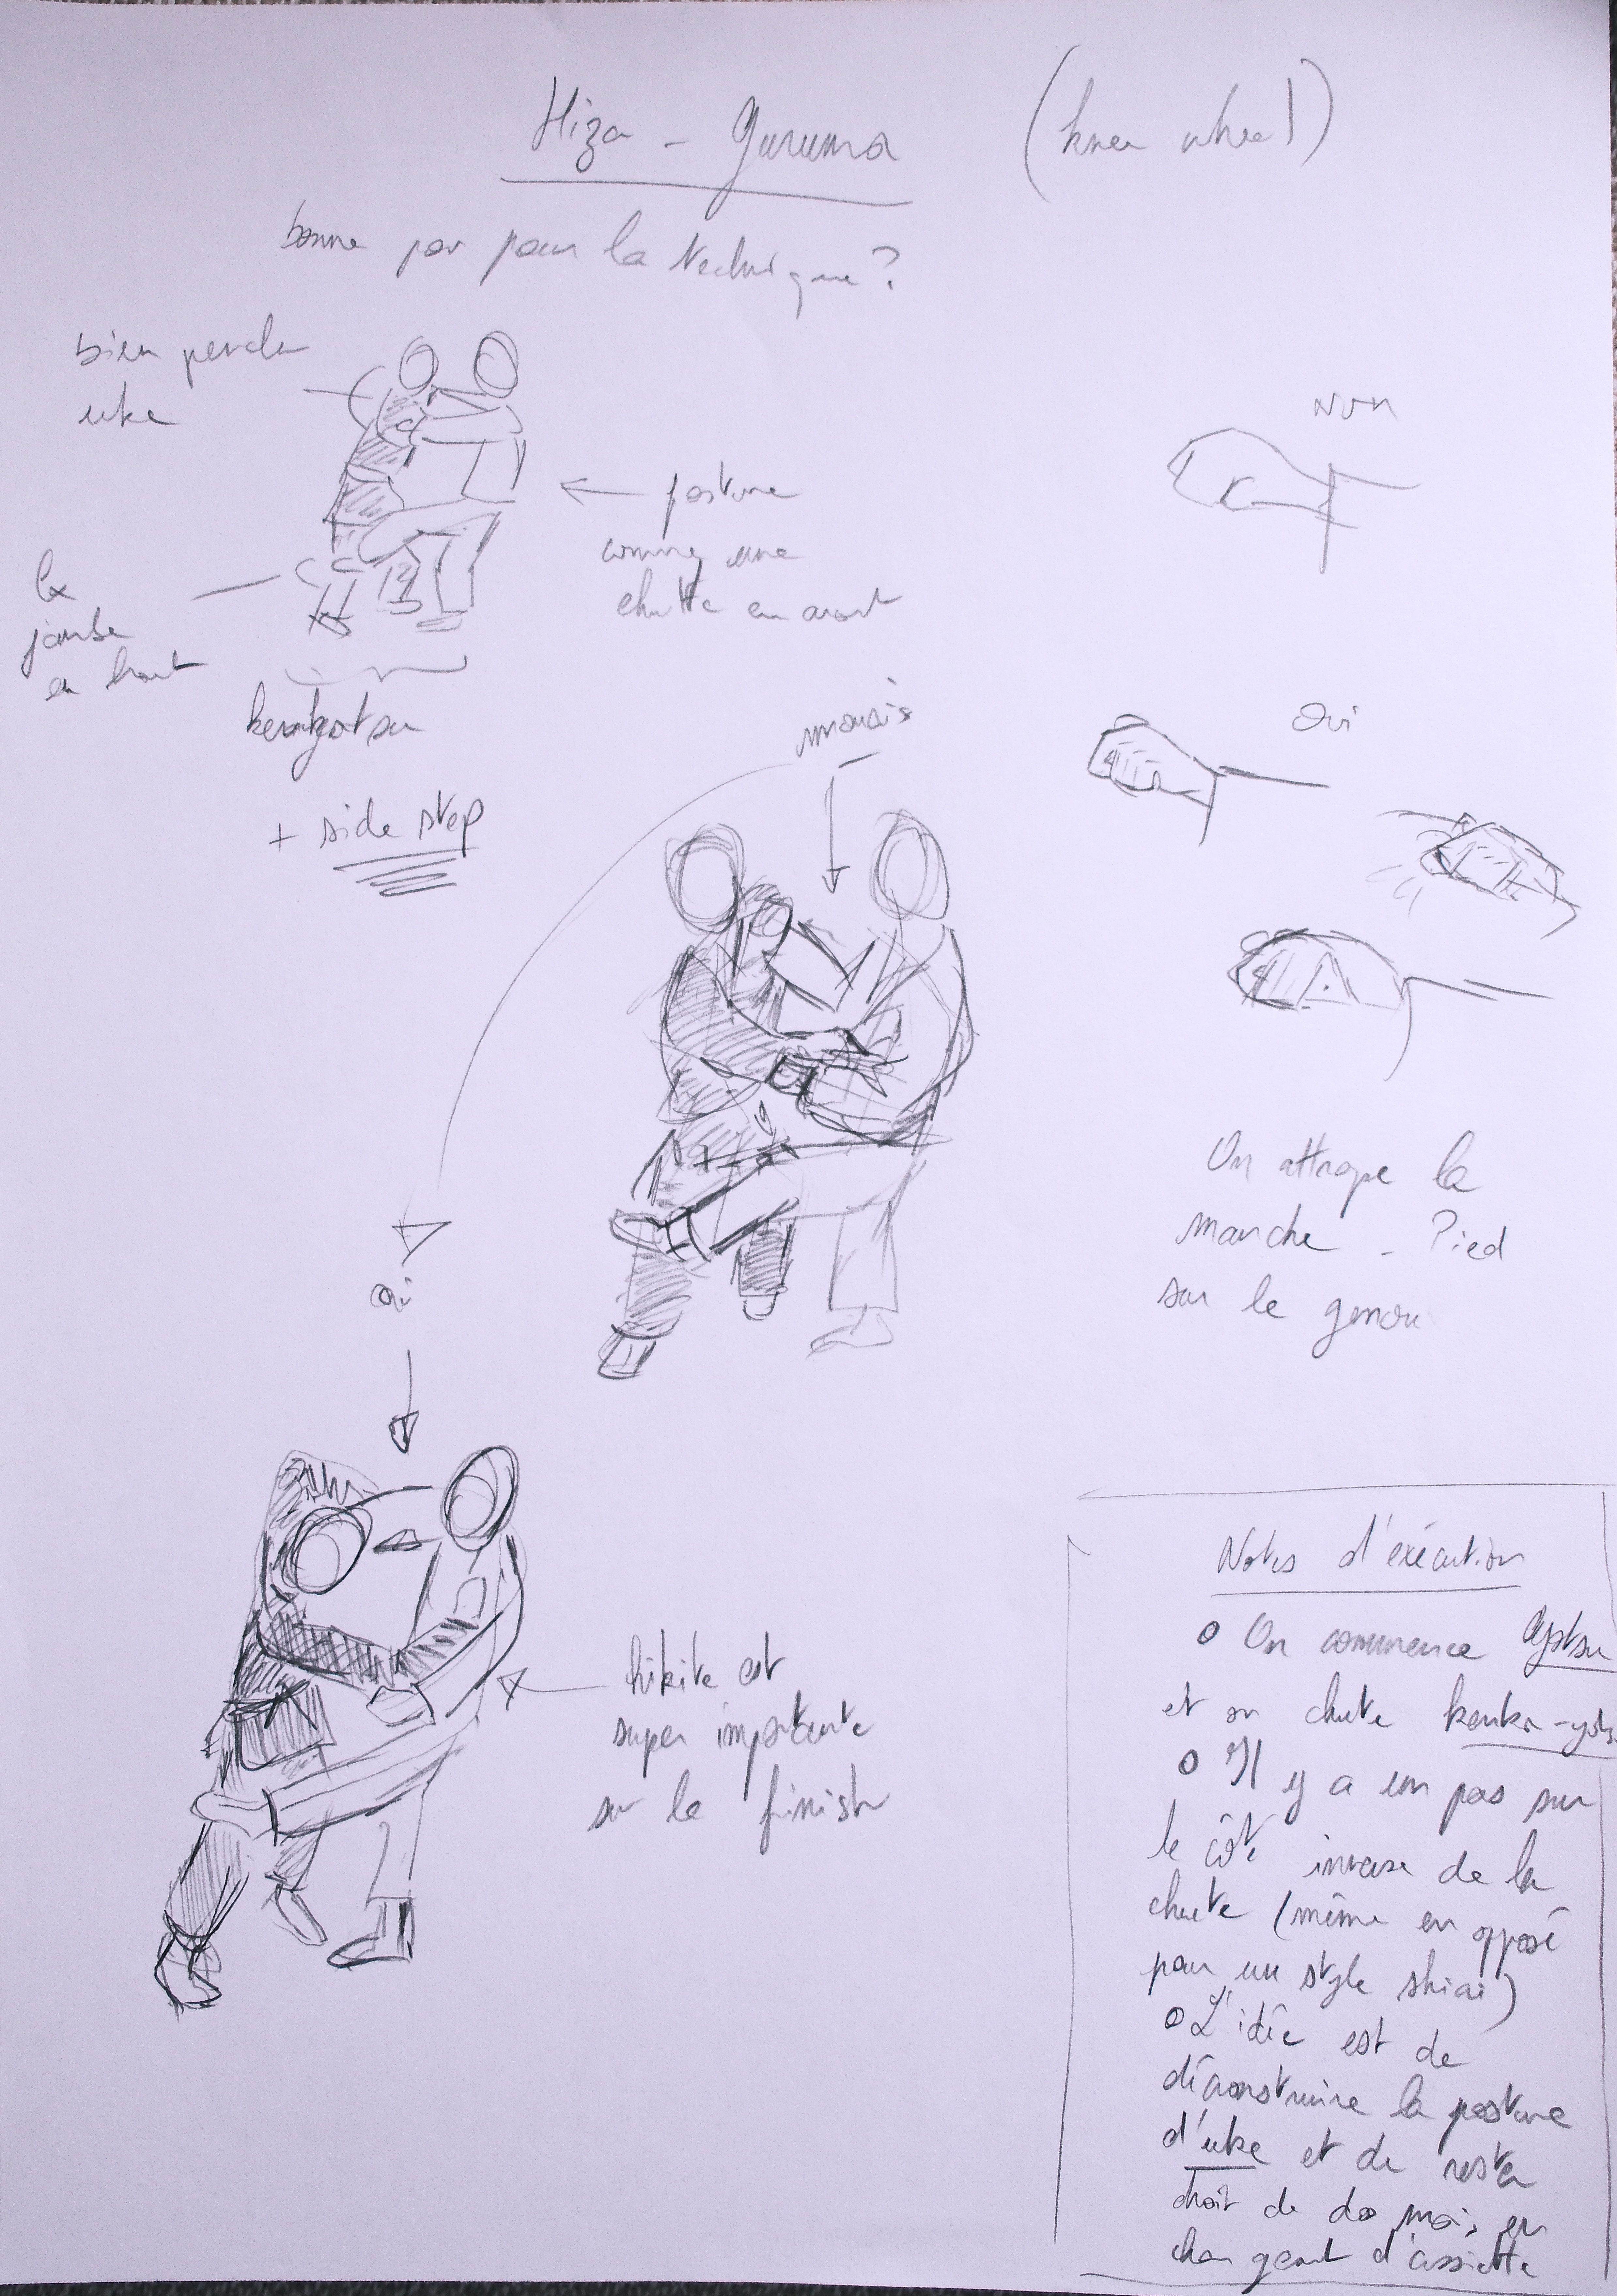 Hiza - Guruma (knee wheel)
bonne par pour la technique?
bien pencher
uke
posture
comme une
chutte en avant
la
jambe
en haut
+ side step
Non
Oui
mauvais
Oui
On attrape la
manche - Pied
sur le genou
hikite est
super importante
sur le finish
Notes d'exécution
o On commence
et on chute
o Il y a un pas sur
le côté inverse de la
chute (même en opposé
pour un style shiai)
o L'idée est de
déconstruire la posture
d'uke et de rester
droit de dos mais en
changeant d'assiette